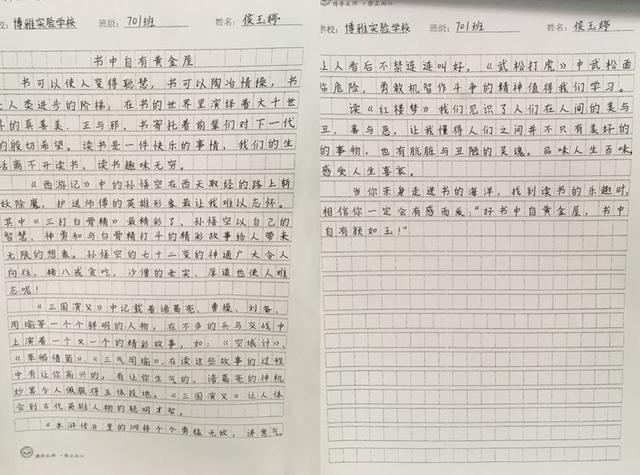 学校: 博雅实验学校 班级: 701班 姓名: 侯玉婷
书中自有黄金屋
书可以使人变得聪慧，书可以陶冶情操，书
让人类进步的阶梯，在书的世界里演绎着大千世
界的真善美、正与邪，书寄托着前辈们对下一代
的殷切希望。读书是一件快乐的事情，我们的生
活离不开读书，读书趣味无穷。
《西游记》中的孙悟空在西天取经的路上斩
妖除魔，护送师傅的英雄形象最让我难以忘怀。
其中《三打白骨精》最精彩了，孙悟空以自己的
智慧、神勇和与白骨精打斗的精彩故事给人带来
无限的想象。孙悟空的七十二变的神通广大令人
向往，猪八戒贪吃，沙僧的老实、厚道也使人难
忘呢！
《三国演义》中记载着诸葛亮、曹操、刘备、
周瑜等一个个鲜明的人物，在不多的兵马交战中
上演着一个又一个的精彩故事，如：《空城计》、
《草船借箭》、《三气周瑜》，在读这些故事的过程
中有让你高兴的，有让你生气的，诸葛亮的神机
妙算令人佩服得五体投地。《三国演义》让人体
会到古代英雄人物的聪明才智。
《水浒传》里的108将个个勇猛无敌，讲义气，
博学笃师·雅正
博学笃师·雅正
学校: 博雅实验学校 班级: 701班 姓名: 侯玉婷
让人看后不禁连连叫好，《武松打虎》中武松面
临危险，勇敢机智作斗争的精神值得我们学习。
读《红楼梦》我们见识了人们在人间的美与
丑、善与恶，让我懂得人们之间并不只有美好的
的事物，也有肮脏与丑陋的灵魂。品味人生百味，
感受人生喜哀。
当你亲身走进书的海洋，找到读书的乐趣时，
相信你一定会有感而发：“好书中自黄金屋，书中
自有颜如玉！”